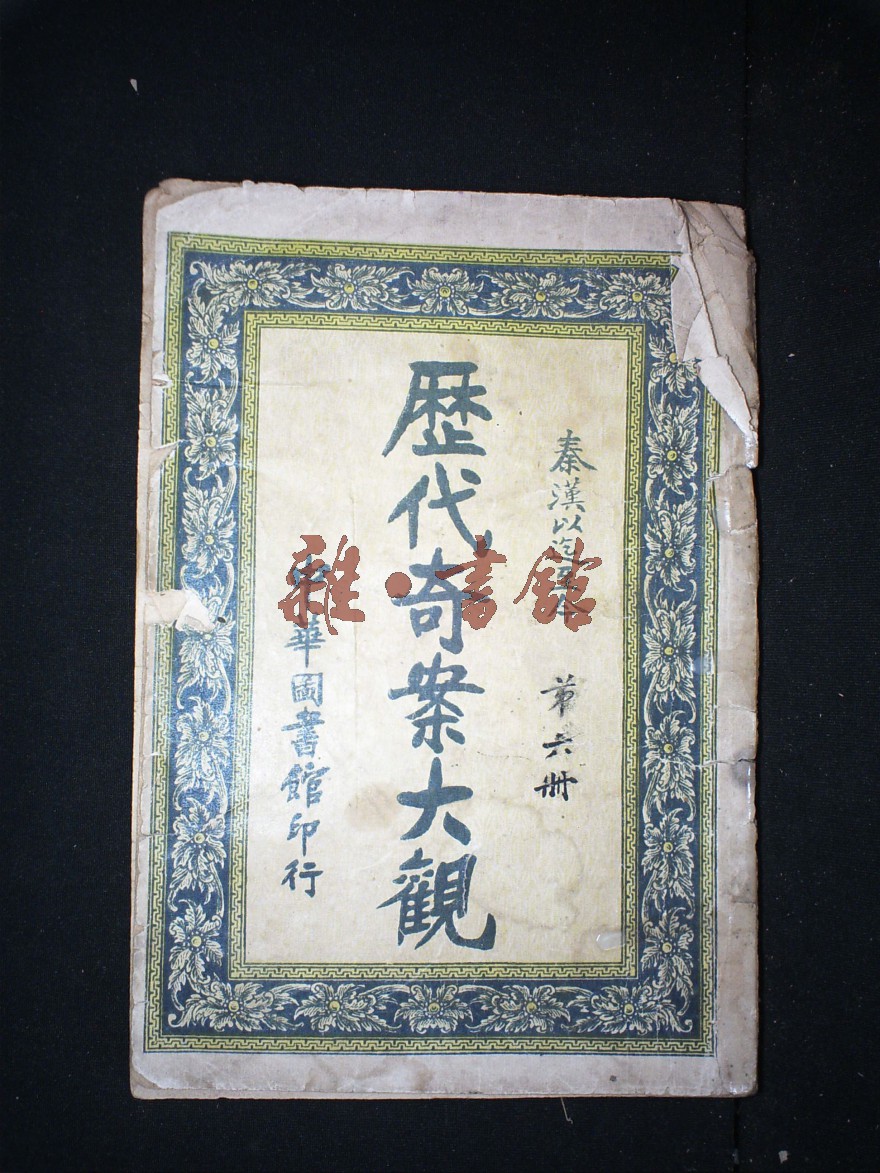 秦漢以迄
第六冊
歷代奇案大觀
華圖書館印行
雜·書館